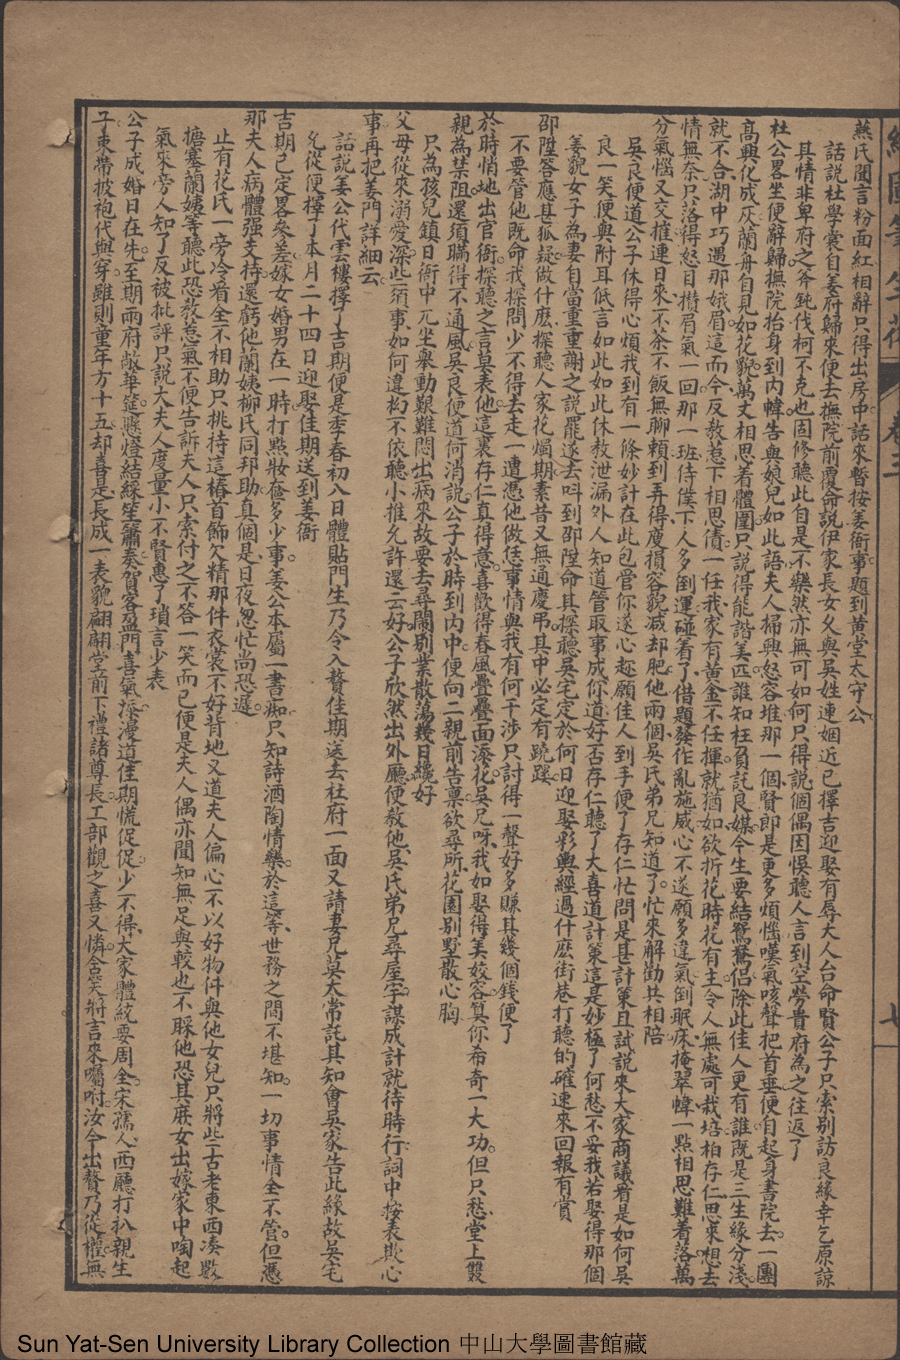 繪圖筆生花 卷三 七
燕氏聞言粉面紅相辭只得出房中話來暫按姜衙事題到黃堂太守公
話說杜學裳自姜府歸來便去撫院前覆命說伊家長女久與吳姓連姻近已擇吉迎娶有辱大人台命賢公子只索別訪良緣幸乞原諒
其情非卑府之斧鈍伐柯不克也固修聽此自是不樂然亦無可如何只得說個偶因悞聽人言到空勞貴府為之往返了
杜公畧坐便辭歸撫院抬身到內幃告與娘兒如此語夫人掃興怒容堆那一個賢郎是更多煩惱嘆氣咳聲把首垂便自起身書院去一團
高興化成灰蘭舟自見如花貌萬丈相思着體圍只說得能諧美匹誰知枉負託良媒今生要結鴛鴦侶除此佳人更有誰既是三生緣分淺
就不合湖中巧遇那娥眉這而今反教惹下相思債一任我家有黃金不任揮就猶如欲折花時花有主令人無處可栽培柏存仁思來想去
情無奈只落得怒目攢眉氣一回那一班侍僕下人多倒運碰着了借題發作亂施威心不遂願多違氣倒眠床掩翠幃一點相思難着落萬
分氣惱又交推連日來不茶不飯無聊賴到弄得龐損容貌減却肥他兩個吳氏弟兄知道了忙來解勸共相陪
吳良便道公子休得心煩我到有一條妙計在此包管你遂心趂願佳人到手便了存仁忙問是甚計策且試說來大家商議看是如何吳
良一笑便與附耳低言如此如此休教泄漏外人知道管取事成你道好否存仁聽了大喜道計策這是妙極了何愁不妥我若娶得那個
姜貌女子為妻自當重重謝之說罷遂去呌到邵陞命其探聽吳宅定於何日迎娶彩輿經過什麽街巷打聽的確速來回報有賞
邵陞答應甚狐疑做什麽探聽人家花燭期素昔又無通慶弔其中必定有蹺蹊
不要管他既命我探問少不得去走一遭憑他做恁事情與我有何干涉只討得一聲好多賺其幾個錢便了
於時悄地出官衙探聽之言莫表他這裏存仁真得意喜歡得春風疊疊面添花吳兄呀我如娶得美姣容算你希奇一大功但只愁堂上雙
親為禁阻還須瞞得不通風吳良便道何消說公子於時到內中便向二親前告禀欲尋所花園別墅散心胸
只為孩兒鎮日衙中兀坐舉動艱難悶出病來故要去尋閒別業散蕩幾日纔好
父母從來溺愛深些須事如何違拗不依聽小推允許還云好公子欣然出外廳便教他吳氏弟兄尋屋字謀成計就待時行詞中按表欺心
事再把姜門詳細云
話說姜公代雲樓擇了吉期便是季春初八日體貼門生乃令入贅佳期送去社府一面又請妻兄莫太常託其知會吳家告此緣故吳宅
允從便擇了本月二十四日迎娶佳期送到姜衙
吉期已定畧參差嫁女婚男在一時打點妝奩多少事姜公本屬一書痴只知詩酒陶情樂於這等世務之間不堪知一切事情全不管但憑
那夫人病體强支持還虧他蘭姨柳氏同邦助真個是日夜怱忙尚恐遲
止有花氏一旁冷看全不相助只挑持這樁首飾欠精那件衣裳不好背地又道夫人偏心不以好物件與他女兒只將些古老東西凑數
搪塞蘭姨等聽此恐教怠氣不便告訴夫人只索付之不答一笑而已便是夫人偶亦聞知無足與較也不睬他恐其庶女出嫁家中啕起
氣來旁人知了反被批評只說大夫人度量小不賢惠了瑣言少表
公子成婚日在先至期兩府敞華筵懸燈結綵笙簫奏賀客盈門喜氣漫道佳期慌促促少不得大家體統要周全宋孺人西廳打扒親生
子束帶披袍代與穿雖則童年方十五却喜是長成一表貌翩翩堂前下禮諸尊長工部觀之喜又憐含笑將言來囑咐汝今出贅乃從權無
Sun Yat-Sen University Library Collection 中山大學圖書館藏